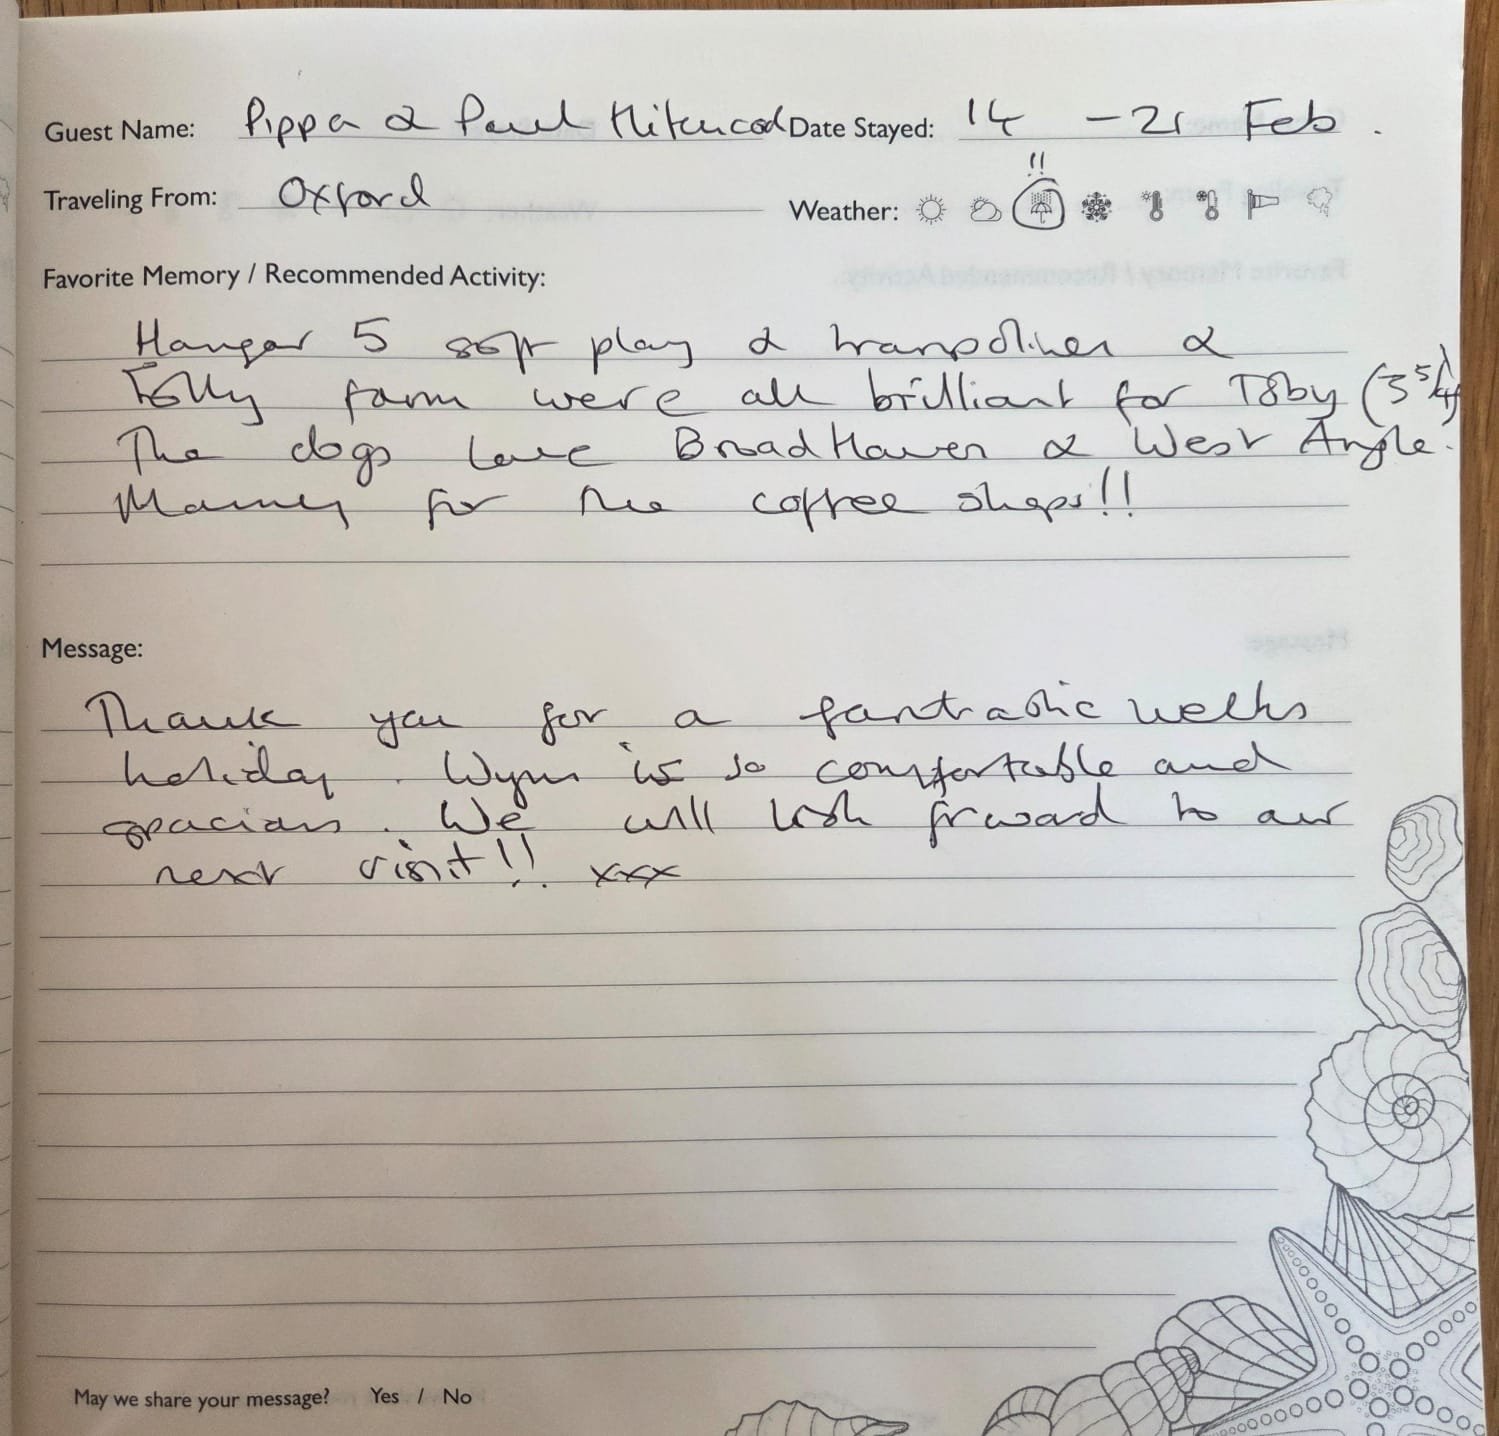 Guest Name: Pippa & Paul Hitchcock Date Stayed: 14 - 21 Feb.
!!
Traveling From: Oxford Weather:
Favorite Memory / Recommended Activity:
Hangar 5 soft play & trampolines &
Folly farm were all brilliant for Toby (3 5/4)
The dogs love Broad Haven & West Angle.
Mummy for the coffee shops!!
Message:
Thank you for a fantastic weeks
holiday. is so comfortable and
spacious. We will look forward to our
next visit!! xxx
May we share your message? Yes / No